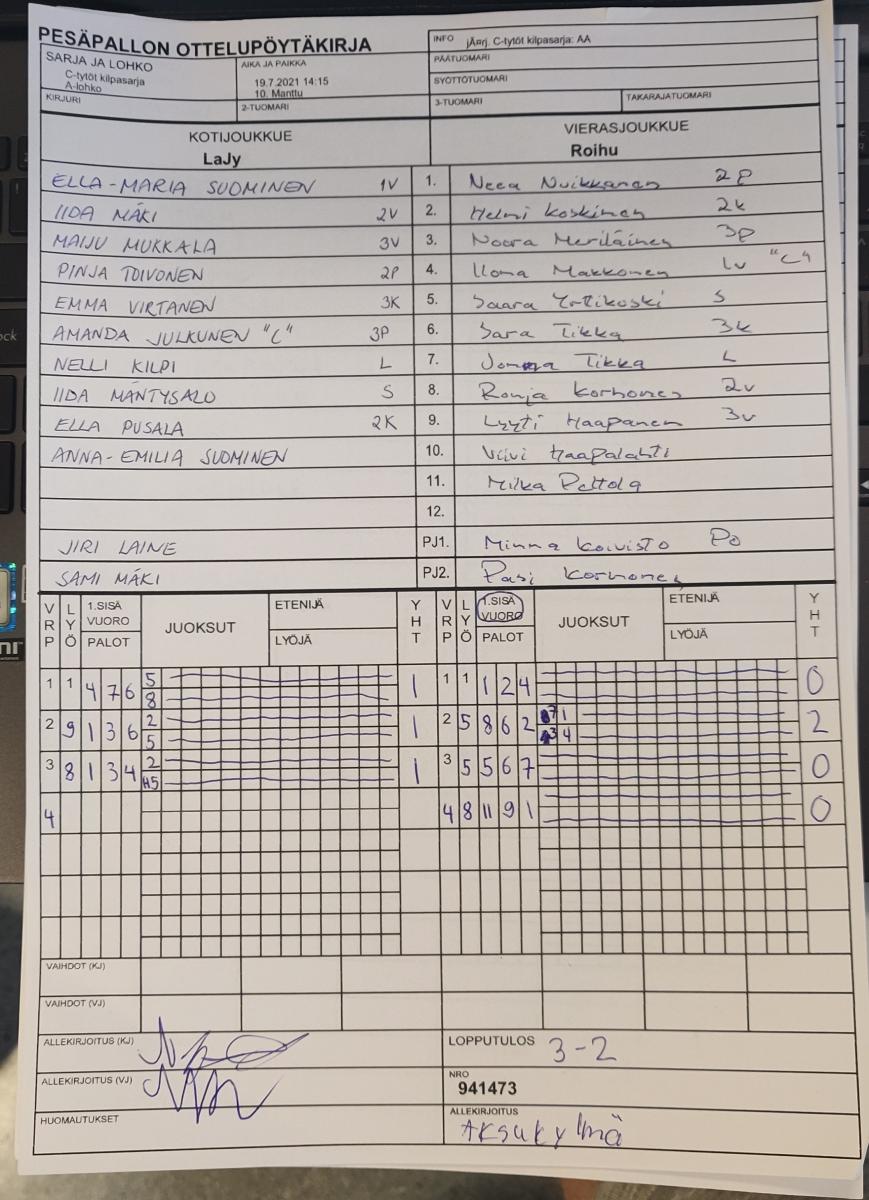 PESÄPALLON OTTELUPÖYTÄKIRJA
INFO jÄnrj. C-tytöt kilpasarja: AA
SARJA JA LOHKO
C-tytöt kilpasarja
A-lohko
AIKA JA PAIKKA
19.7.2021 14:15
10. Manttu
PÄÄTUOMARI
SYÖTTÖTUOMARI
KIRJURI
2-TUOMARI
3-TUOMARI
TAKARAJATUOMARI
KOTIJOUKKUE
LaJy
VIERASJOUKKUE
Roihu
ELLA-MARIA SUOMINEN 1V 1. Neea Nuikkanen 2P
IIDA MÄKI 2V 2. Helmi Koskinen 2K
MAIJU MUKKALA 3V 3. Noora Meriläinen 3P
PINJA TOIVONEN 2P 4. Ilona Makkonen 1V "C"
EMMA VIRTANEN 3K 5. Saara S
AMANDA JULKUNEN "C" 3P 6. Sara Tikka 3K
NELLI KILPI L 7. Tikka L
IIDA MÄNTYSALO S 8. Ronja Korhonen 2V
ELLA PUSALA 2K 9. Lyyti Haapanen 3V
ANNA-EMILIA SUOMINEN 10. Viivi Haapalahti
11. Milka Peltola
12.
JIRI LAINE PJ1. Minna Koivisto PO
SAMI MÄKI PJ2. Pasi Korhonen
VRP LYÖ 1.SISÄ VUORO PALOT JUOKSUT ETENIJÄ LYÖJÄ YHT VRP LYÖ 1.SISÄ VUORO PALOT JUOKSUT ETENIJÄ LYÖJÄ YHT
1 1 4 7 6 5 8 1 1 1 1 2 4 0
2 9 1 3 6 2 5 1 2 5 8 6 2 7 1 3 4 2
3 8 1 3 4 2 H5 1 3 5 5 6 7 0
4 4 8 11 9 1 0
VAIHDOT (KJ)
VAIHDOT (VJ)
ALLEKIRJOITUS (KJ)
LOPPUTULOS 3-2
ALLEKIRJOITUS (VJ)
NRO
941473
HUOMAUTUKSET
ALLEKIRJOITUS